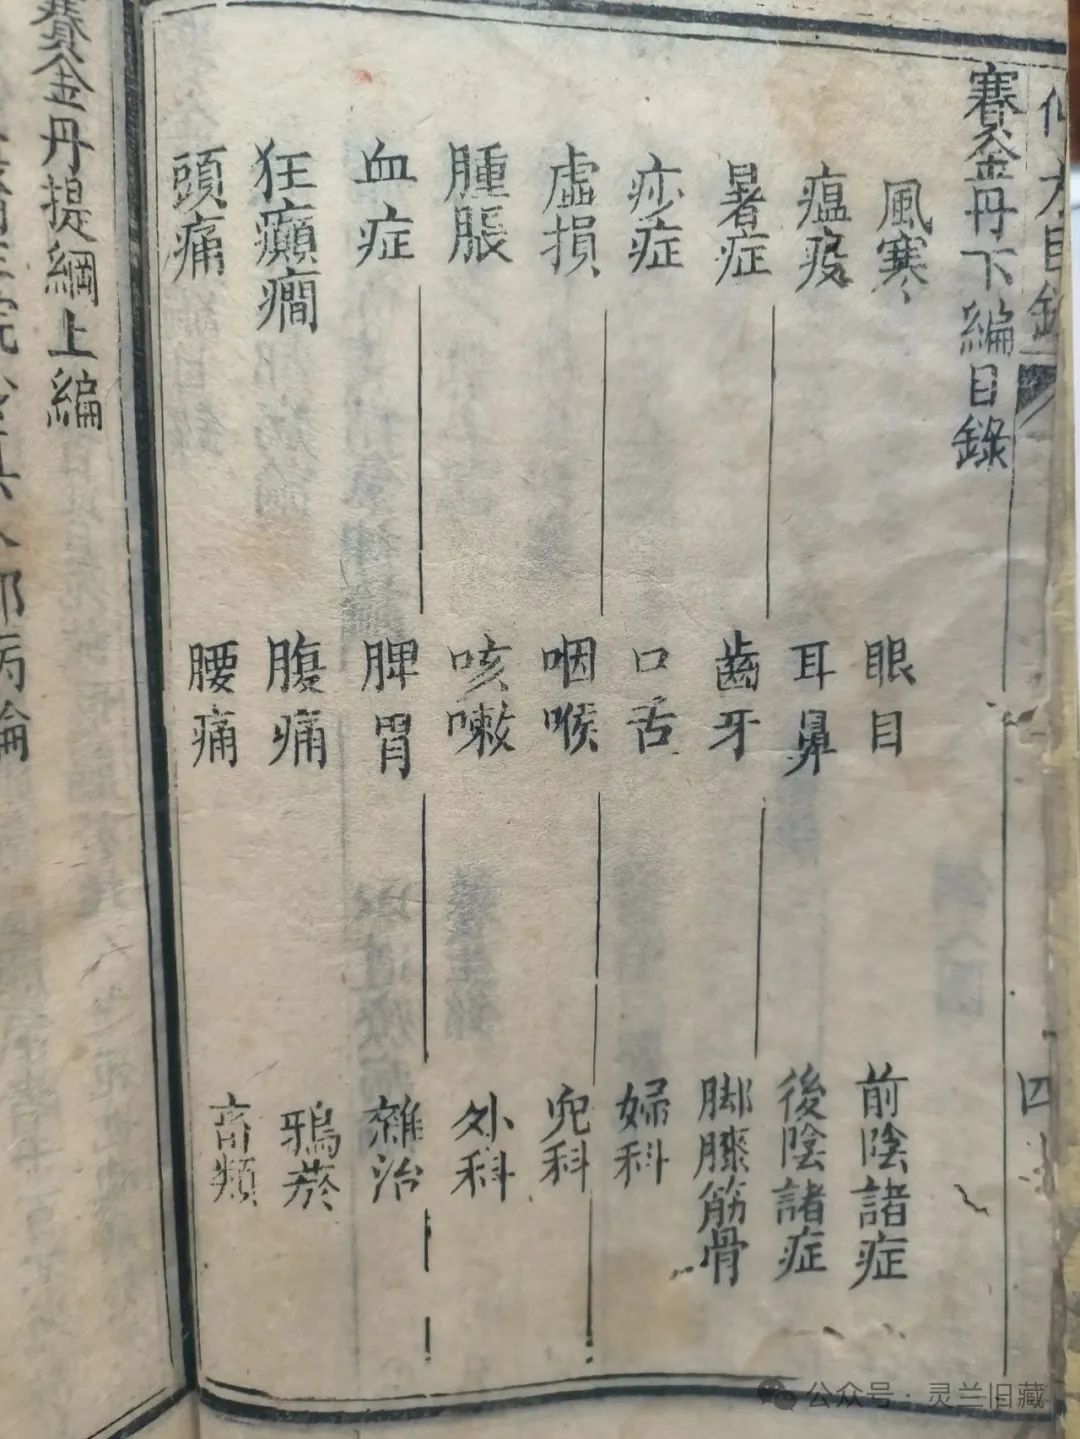 賽金丹下編目錄
風寒
眼目
前陰諸症
瘟疫
耳鼻
後陰諸症
暑症
齒牙
脚膝筋骨
痧症
口舌
婦科
虛損
咽喉
兒科
腫脹
咳嗽
外科
血症
脾胃
雜治
狂癲癇
腹痛
鴉菸
頭痛
腰痛
畜類
四
賽金丹提綱上編
公众号·灵兰旧藏